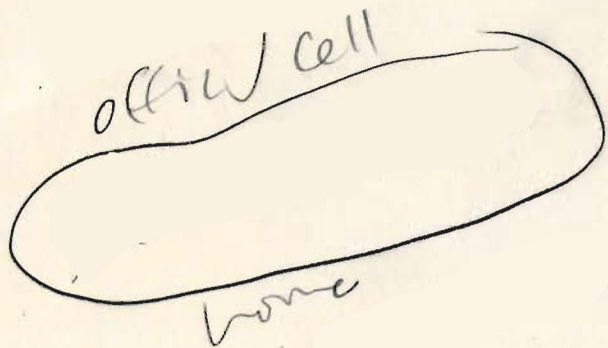 office/cell
home